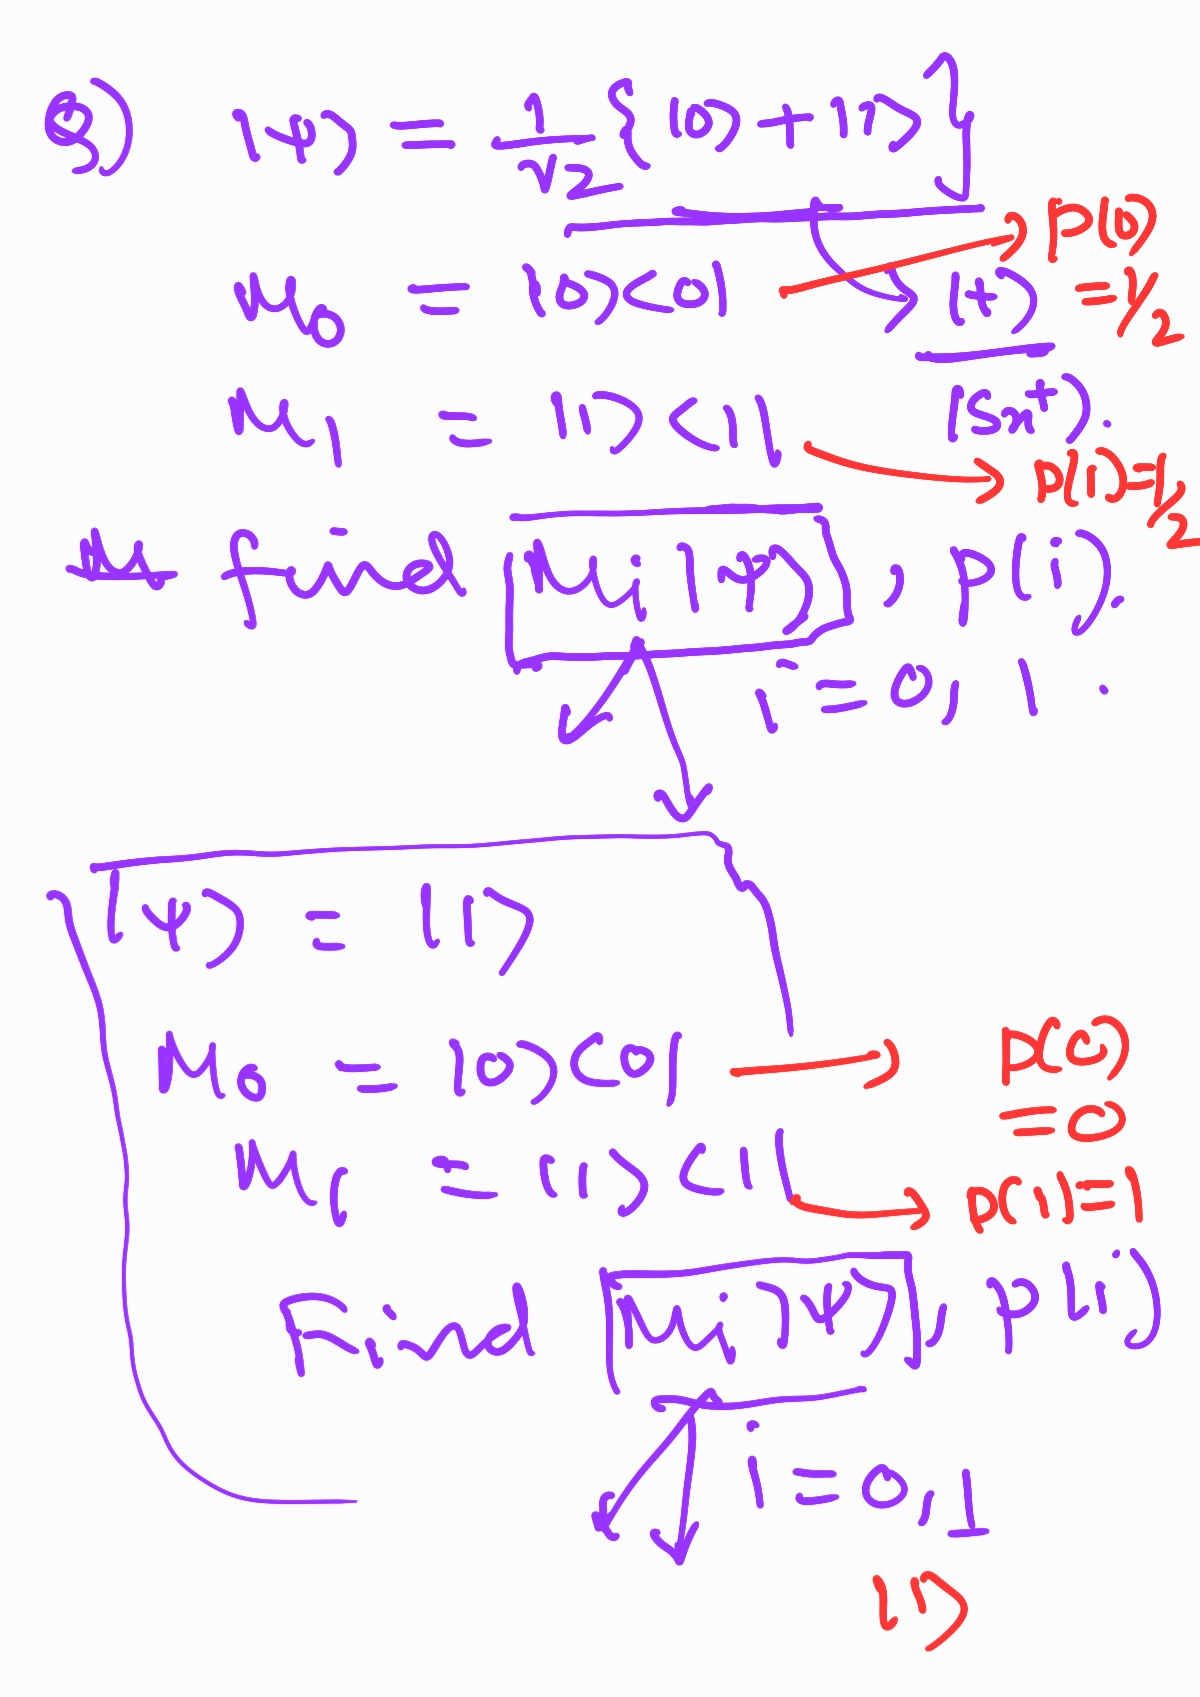 Q) |ψ⟩ = 1/√2 {|0⟩ + |1⟩}
M₀ = |0⟩⟨0| → P(0) = 1/2
|+⟩
|Sx⁺⟩.
M₁ = |1⟩⟨1| → P(1) = 1/2
find Mᵢ|ψ⟩, P(i).
i = 0, 1.
|ψ⟩ = |1⟩
M₀ = |0⟩⟨0| → P(0) = 0
M₁ = |1⟩⟨1| → P(1) = 1
Find Mᵢ|ψ⟩, P(i)
i = 0, 1
|1⟩